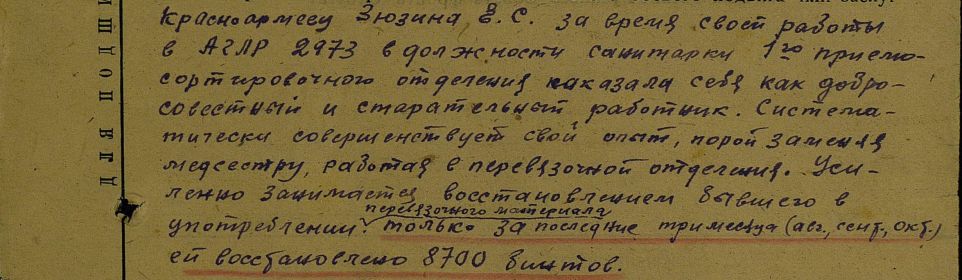 Красноармеец Зюзина Е.С. за время своей работы
в АГЛР 2973 в должности санитарки 1го приемо-
сортировочного отделения показала себя как добро-
совестный и старательный работник. Система-
тически совершенствует свой опыт, порой заменяя
медсестру, работая в перевязочной отделения. Уси-
ленно занимается восстановлением бывшего в
перевязочного материала
употреблении. только за последние три месяца (авг., сент., окт.)
ей восстановлено 8700 бинтов.
ДЛЯ ПОДШИ